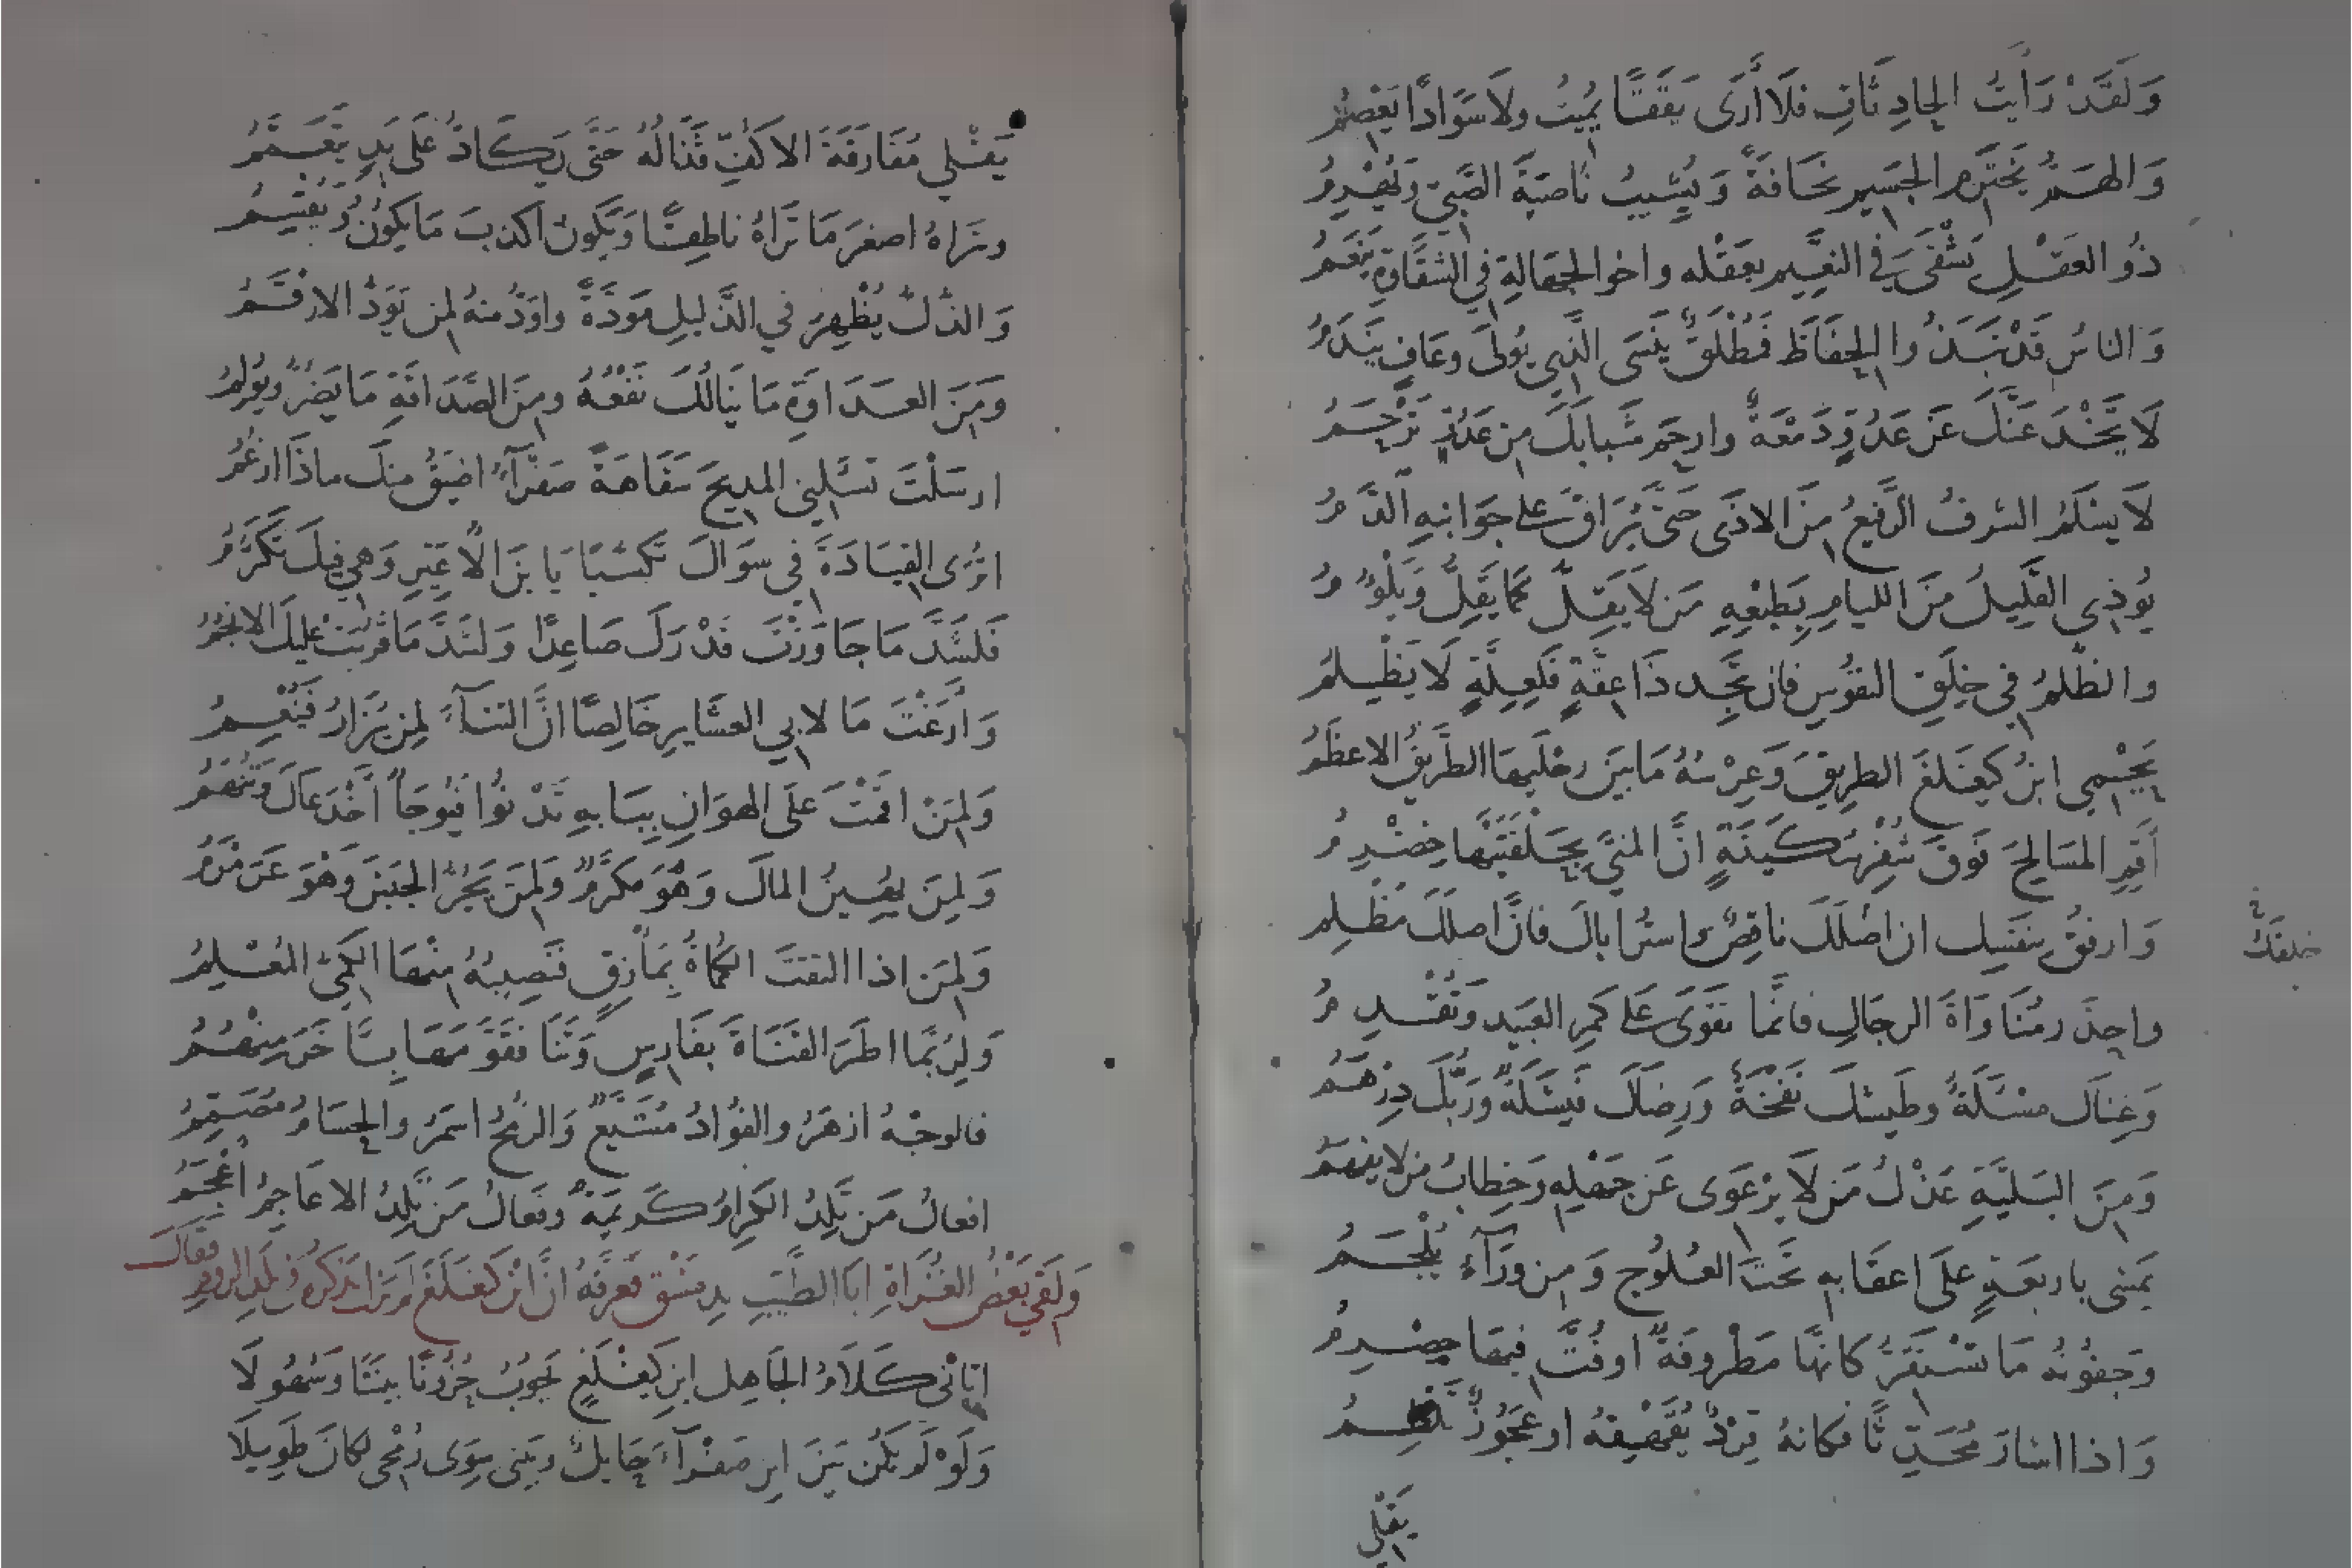 وَلَقَدْ رَأَيتُ الحادِثَاتِ فلَا أَرَى يَقَقًا يُمِيتُ ولَا سَوَادًا يَعْصِمُ
وَالهَمُّ يَخْتَرِمُ الجَسِيمَ نَحَافَةً وَيُشِيبُ نَاصِيَةَ الصَّبِيِّ وَيُهْرِمُ
ذُو العَقْلِ يَشْقَى في النعِيمِ بعقْلِه واخو الجهَالةِ في الشقَاوةِ يَنْعَمُ
وَالناسُ قَدْ نَبَذُوا الحِفَاظَ فَمُطْلَقٌ يَنْسَى الَّذِي يُولَى وعَافٍ يَنْدَمُ
لَا يَخْدَعَنَّكَ عَن عَدُوٍّ دَمْعَةٌ وارحَم شَبابَكَ مِن عَدُوٍّ تَرْحَمُ
لَا يسْلَمُ الشرفُ الرَّفِيعُ مِنَ الاذَى حَتَّى يُرَاقَ على جوَانبهِ الدَّمُ
يُوذِي القَلِيلُ مِنَ الليامِ بِطَبْعِهِ مَن لَا يَقِلُّ كَمَا يَقِلُّ وَيَلْؤُمُ
والظُّلمُ في خِلَقِ النفُوسِ فان تَجِد ذَا عِفَّةٍ فَلِعِلَّةٍ لَا يَظْلِمُ
يَحْمِي ابنُ كَيغَلَغَ الطرِيقَ وَعِرْسُهُ مَا بَينَ رجْلَيهَا الطَّرِيقُ الاعظَمُ
أَقِمِ المَسَالِحَ فَوقَ شُفْرِ سُكَينَةٍ انَّ المَنِيَّ بِحَلْقَتَيْهَا خِضْرِمُ
وَارفقْ بنَفسِك ان اصْلَكَ ناقِصٌ واستُر اباكَ فانَّ اصلَكَ مُظْلِم
خلقَكَ
واحذَر مُنَاوَاةَ الرجَالِ فانَّما تقْوَى على كَمَرِ العَبيد وَتُقْدِمُ
وَغِنَاكَ مسْئَلَةٌ وطَيشكَ نَفْخَةٌ وَرِضَاكَ فَيْشَلَةٌ وَرَبُّكَ دِرْهَمُ
وَمِنَ البَلِيَّةِ عَذْلُ مَن لَا يَرْعَوِى عَن جَهْلِهِ وَخِطابُ مَن لا يفهَمُ
يَمشِى باربعَةٍ عَلَى اعقَابهِ تَحْتَ العُلُوجِ وَمِن وَرَآءٍ يُلْجَمُ
وَجفُونُه مَا تَسْتَقِرُّ كَانهَّا مَطْرُوفَةٌ او فُتَّ فِيهَا حِصْرِمُ
وَاذا اشارَ مُحَدِّثًا فكَانهُ قِرْدٌ يُقَهْقِهُ او عَجُوزٌ تَلْطِمُ
يَقْلِي
يَقْلِي مُفَارَقَةَ الاكُفِّ قَذَالُهُ حَتَّى يَكَادُ عَلَى يَدٍ يَتَعَمَّمُ
وتَرَاهُ اصغرَ مَا تَرَاهُ ناطِقًا وَيَكُون اكذبَ مَا يكوُنُ وَيُقْسِمُ
وَالذُّلُّ يُظْهِرُ في الذَّلِيلِ مَوَدَّةً واوَدُّ منهُ لِمَن يَوَدُّ الارقَمُ
وَمِنَ العَدَاوَةِ مَا يَنَالُكَ نَفْعُهُ ومِنَ الصَّدَاقَةِ مَا يَضُرُّ ويُولِمُ
ارسَلْتَ تسئَلُنِي المَدِيحَ سَفَاهَةً صَفْرَآءُ اضيَقُ مِنكَ ماذَا ازعُمُ
اتُرَى القِيَادَةَ فِي سوَاكَ تكَسُّبًا يَا بنَ الأُعَيِّرِ وَهي فِيكَ تَكَرُّمُ
فَلَشَدَّ مَا جَاوَزْتَ قَدْرَكَ صَاعِدًا وَلَشَدَّ مَا قرُبَتْ عليكَ الانجُمُ
وَأَرَغْتَ مَا لابي العشَايرِ خَالِصًا انَّ الثنَآءَ لِمَن يُزَارُ فَيُنْعِمُ
وَلِمَنْ اقَمْتَ عَلَى الهوَانِ بِبَابهِ تَدْنُوا فَيُوجَأُ اخْدَعَاكَ وَتُنْهَمُ
وَلِمَن يُهِينُ المالَ وَهْوَ مكَرَّمٌ وَلِمَن يَجُرُّ الجَيشَ وَهْوَ عَرَمْرَمُ
وَلِمَن اذا التقَتِ الكُمَاةُ بِمَأْزِقٍ فَنَصِيبُهُ مِنْهَا الكَمِيُّ المُعْلِمُ
وَلرُبَّمَا اطَرَ القَنَاةَ بفَارِسٍ وَثَنَى فقَوَّمَهَا بِآخَرَ مِنْهُمُ
فالوجْهُ ازهَرُ والفُوَادُ مُشَيَّعٌ وَالرُّمحُ اسمَرُ والحُسَامُ مُصَمِّمُ
افعالُ مَن تَلِدُ الكِرَامُ كَرِيمَةٌ وفَعَالُ مَن تَلِدُ الاعَاجِمُ أَعْجَمُ
وَلَقي بَعْضُ الغُزَاةِ ابَا الطَّيِّبِ بِدِمَشْق فعَرَّفَهُ انَّ ابْنَ كَيغَلَغَ لَم يَزَل يَذكرُهُ في بَلَدِ الرومِ فقَالَ
اتانَى كَلَامُ الجَاهِل ابنِ كَيَغْلَغٍ يَجُوبُ حُزُونًا بينَنَا وَسُهُولَا
وَلَوْ لَم يَكُن بَينَ ابنِ صَفْرَآءَ حَايِلٌ وبَينِى سِوَى رُمْحِى لكَانَ طَوِيلَا